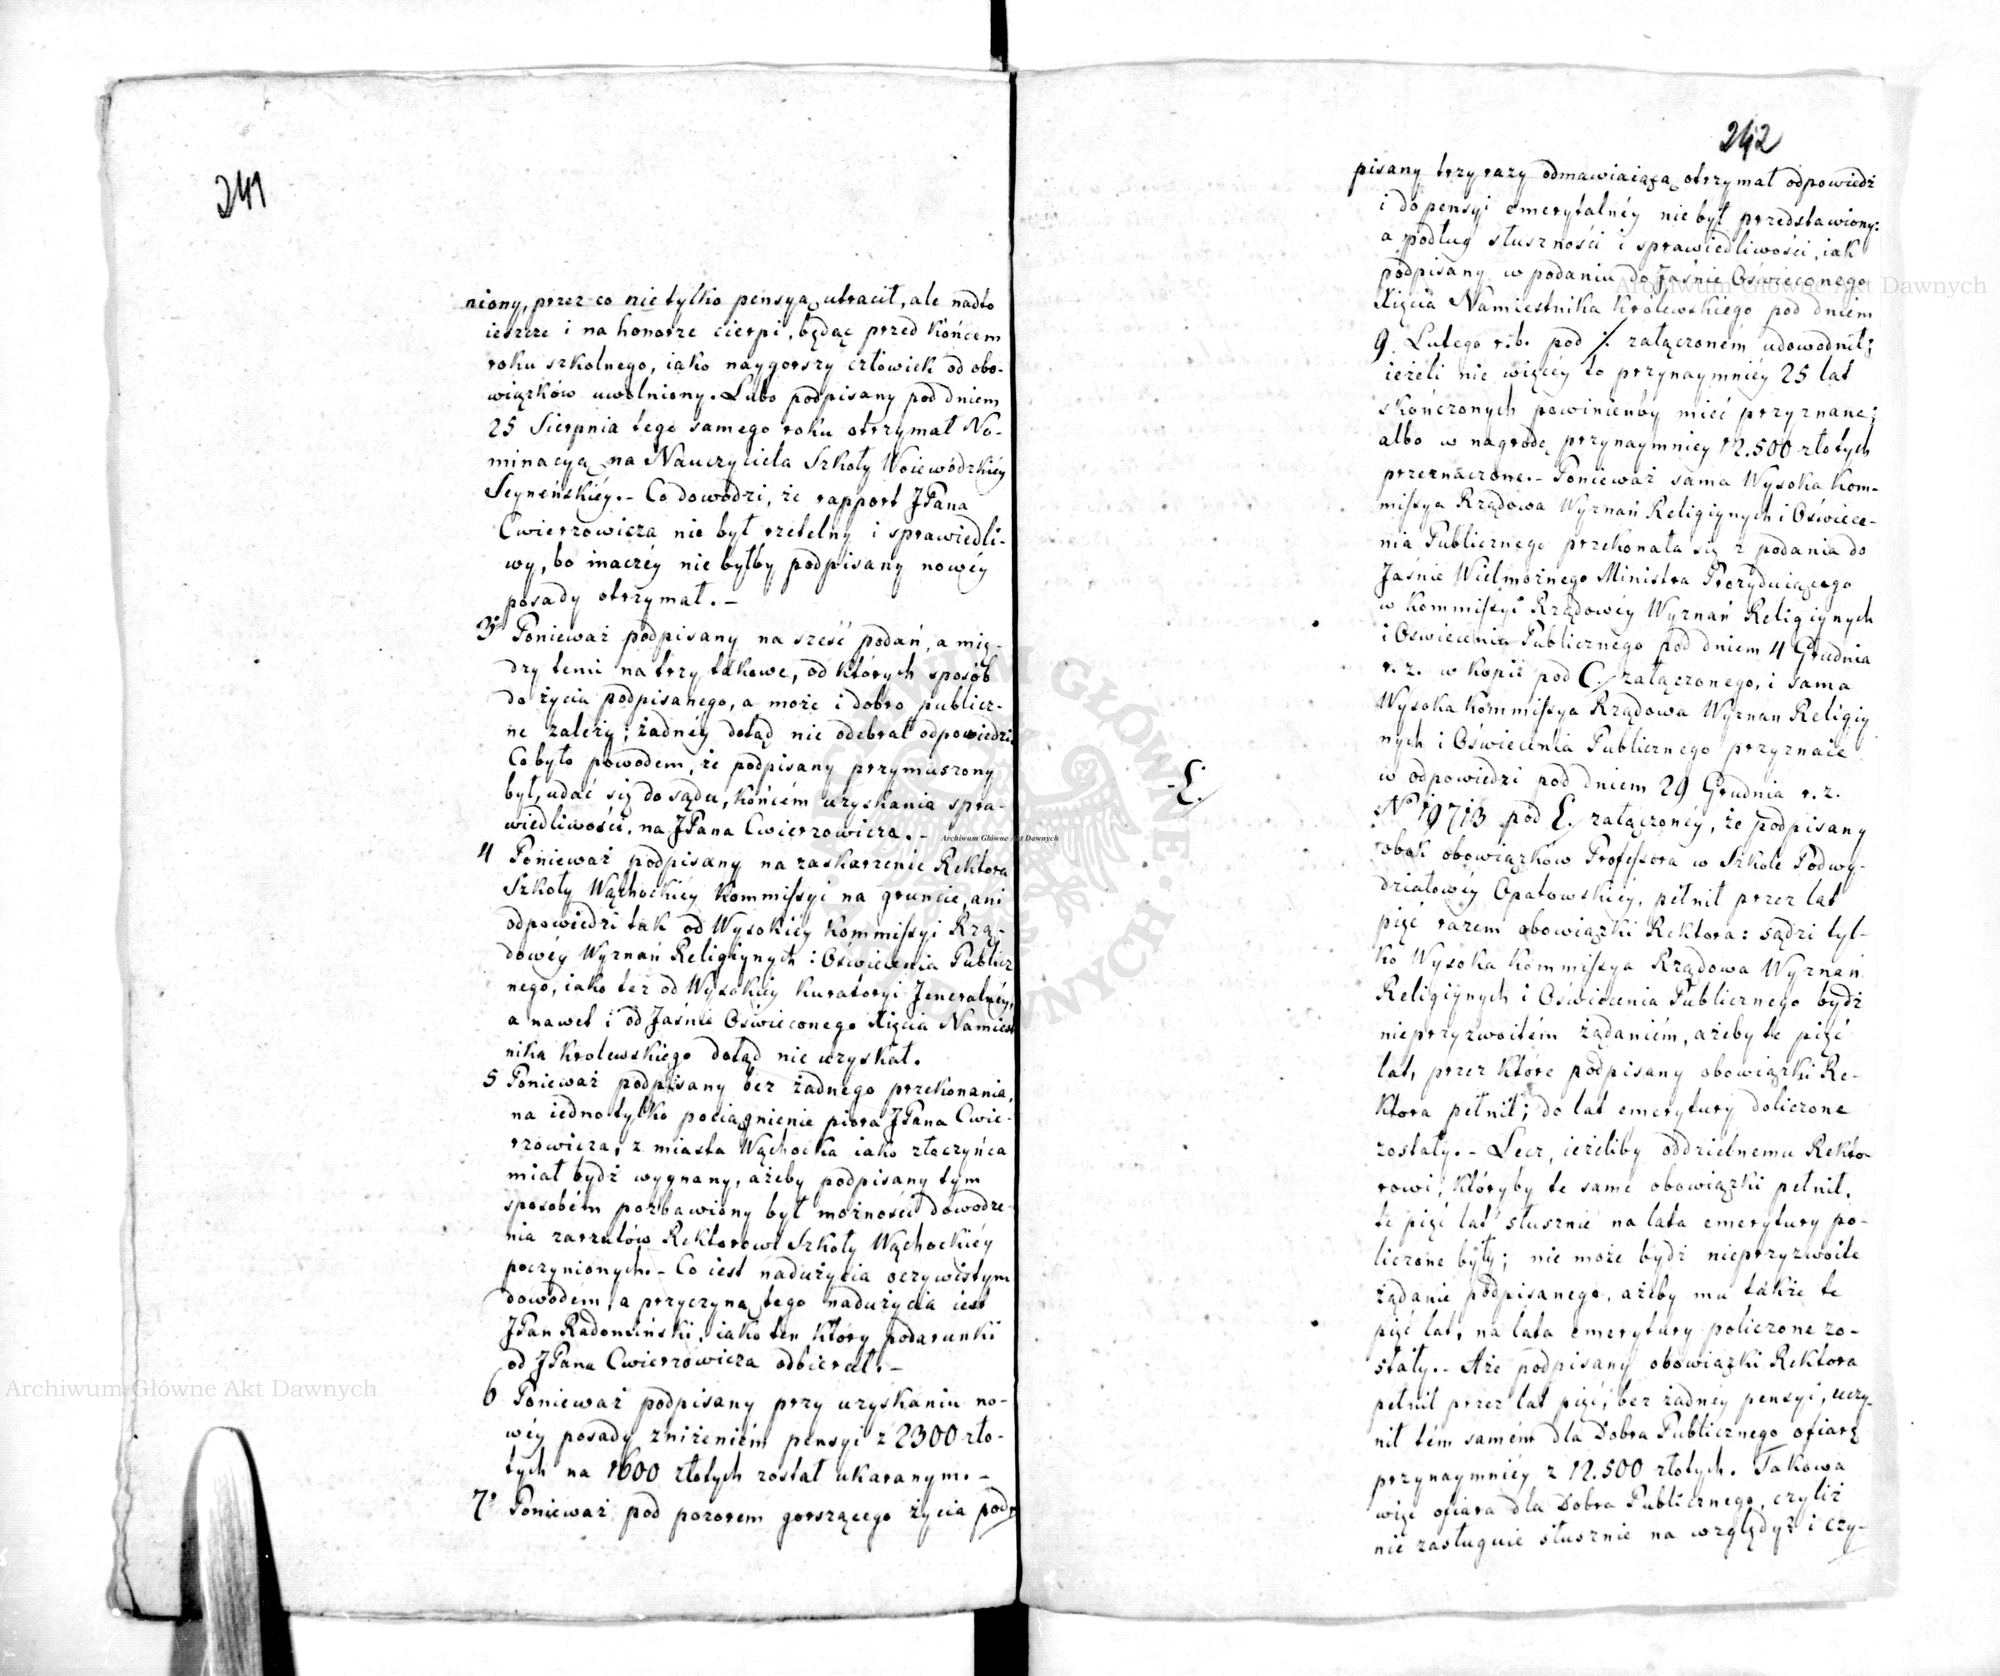 241
niony, przez co nie tylko pensyą utracił, ale nadto
ieszcze i na honorze cierpi, będąc przed końcem
roku szkolnego, iako naygorszy człowiek od obo-
wiązków uwolniony. Lubo podpisany pod dniem
25 Sierpnia tego samego roku otrzymał No-
minacyą na Nauczyciela Szkoły Woiewódzkiéy
Seyneńskiéy. – Co dowodzi, że rapport JPana
Cwierzowicza nie był rzetelny i sprawiedli-
wy, bo inaczéy nie byłby podpisany nowéy
posady otrzymał. –
3 Ponieważ podpisany na sześć podań, a mię-
dzy temi na trzy takowe, od których sposób
do życia podpisanego, a może i dobro publicz-
ne zależy; żadnéy dotąd nie odebrał odpowiedzi
Co było powodem, że podpisany przymuszony
był, udać się do sądu, końcém uzyskania spra-
wiedliwości, na JPana Cwierzowicza. –
4 Ponieważ podpisany na zaskarżenie Rektora
Szkoły Wąchockiéy Kommissyi na gruncie, ani
odpowiedzi tak od Wysokiéy Kommissyi Rzą-
dowéy Wyznań Religiynych i Oświecenia Publicz
nego, iako też od Wysokiéy Kuratoryi Jeneralnéy,
a nawet i od Jaśnie Oświeconego Xięcia Namiest
nika Krolewskiego dotąd nie uzyskał.
5 Ponieważ podpisany bez żadnego przekonania,
na iedno tylko pociągnienie piora JPana Cwie-
rzowicza, z miasta Wąchocka iako złoczyńca
miał bydź wygnany, ażeby podpisany tym
sposobém pozbawiony był możności dowodze-
nia zarzutów Rektorowi Szkoły Wąchockiéy
poczynionych. – Co iest nadużycia oczywistym
dowodém, a przyczyną tego nadużycia iest
JPan Radomiński, iako ten który podarunki
od JPana Cwierzowicza odbierał. –
6 Ponieważ podpisany przy uzyskaniu no-
wéy posady zniżeniém pensyi z 2300 zło-
tych na 1600 złotych został ukaranym. –
7 Ponieważ pod pozorem gorszącego życia podp
242
pisany trzy razy odmawiaiącą otrzymał odpowiedź
i do pensyi emerytalnéy nie był przedstawiony:
a podług słuszności i sprawiedliwości, iak
podpisany w podaniu do Jaśnie Oświeconego
Xięcia Namiestnika Królewskiego pod dniem
9. Lutego r.b. pod ./. załączoném udowodnił;
ieżeli nie więcéy to przynaymniéy 25 lat
skończonych powinienby mieć przyznane;
albo w nagrodę przynaymniey 12.500 złotych
przeznaczone. – Ponieważ sama Wysoka Kom-
missya Rządowa Wyznań Religiynych i Oświece-
nia Publicznego przekonała się z podania do
Jaśnie Wielmożnego Ministra Prezyduiącego
w Kommissyi Rządowéy Wyznań Religiynych
i Oświecenia Publicznego pod dniem 4 Grudnia
r. z. w kopii pod C. załączonego, i sama
Wysoka Kommissya Rządowa Wyznan Religiy
nych i Oświecenia Publicznego przyznaie
w odpowiedzi pod dniem 29 Grudnia r. z.
E.
No 19713 pod E. załączonéy, że podpisany
obok obowiązków Professora w Szkole Podwy-
działowéy Opatowskiéy, pełnił przez lat
pięć razem obowiązki Rektora: sądzi tyl-
ko Wysoka Kommissya Rządowa Wyznań
Religiynych i Oświecenia Publicznego bydź
nieprzyzwoitém żądaniém, ażeby te pięć
lat, przez które podpisany obowiązki Re-
ktora pełnił; do lat emerytury doliczone
zostały. – Lecz, ieżeliby oddzielnemu Rekto-
rowi, któryby te same obowiązki pełnił,
te pięć lat słusznie na lata emerytury po-
liczone były; nie może bydź nieprzyzwoite
żądanie podpisanego, ażeby mu także te
pięć lat, na lata emerytury policzone zo-
stały. – Aże podpisany obowiązki Rektora
pełnił przez lat pięć, bez żadnéy pensyi, uczy-
nił tém samém dla Dobra Publicznego ofiarę
przynaymniéy z 12.500 złotych. Takowa
więc ofiara dla Dobra Publicznego, czyliż
nie zasługuie słusznie na względy? i czy-
Archiwum Główne Akt Dawnych
Archiwum Główne Akt Dawnych
Archiwum Główne Akt Dawnych